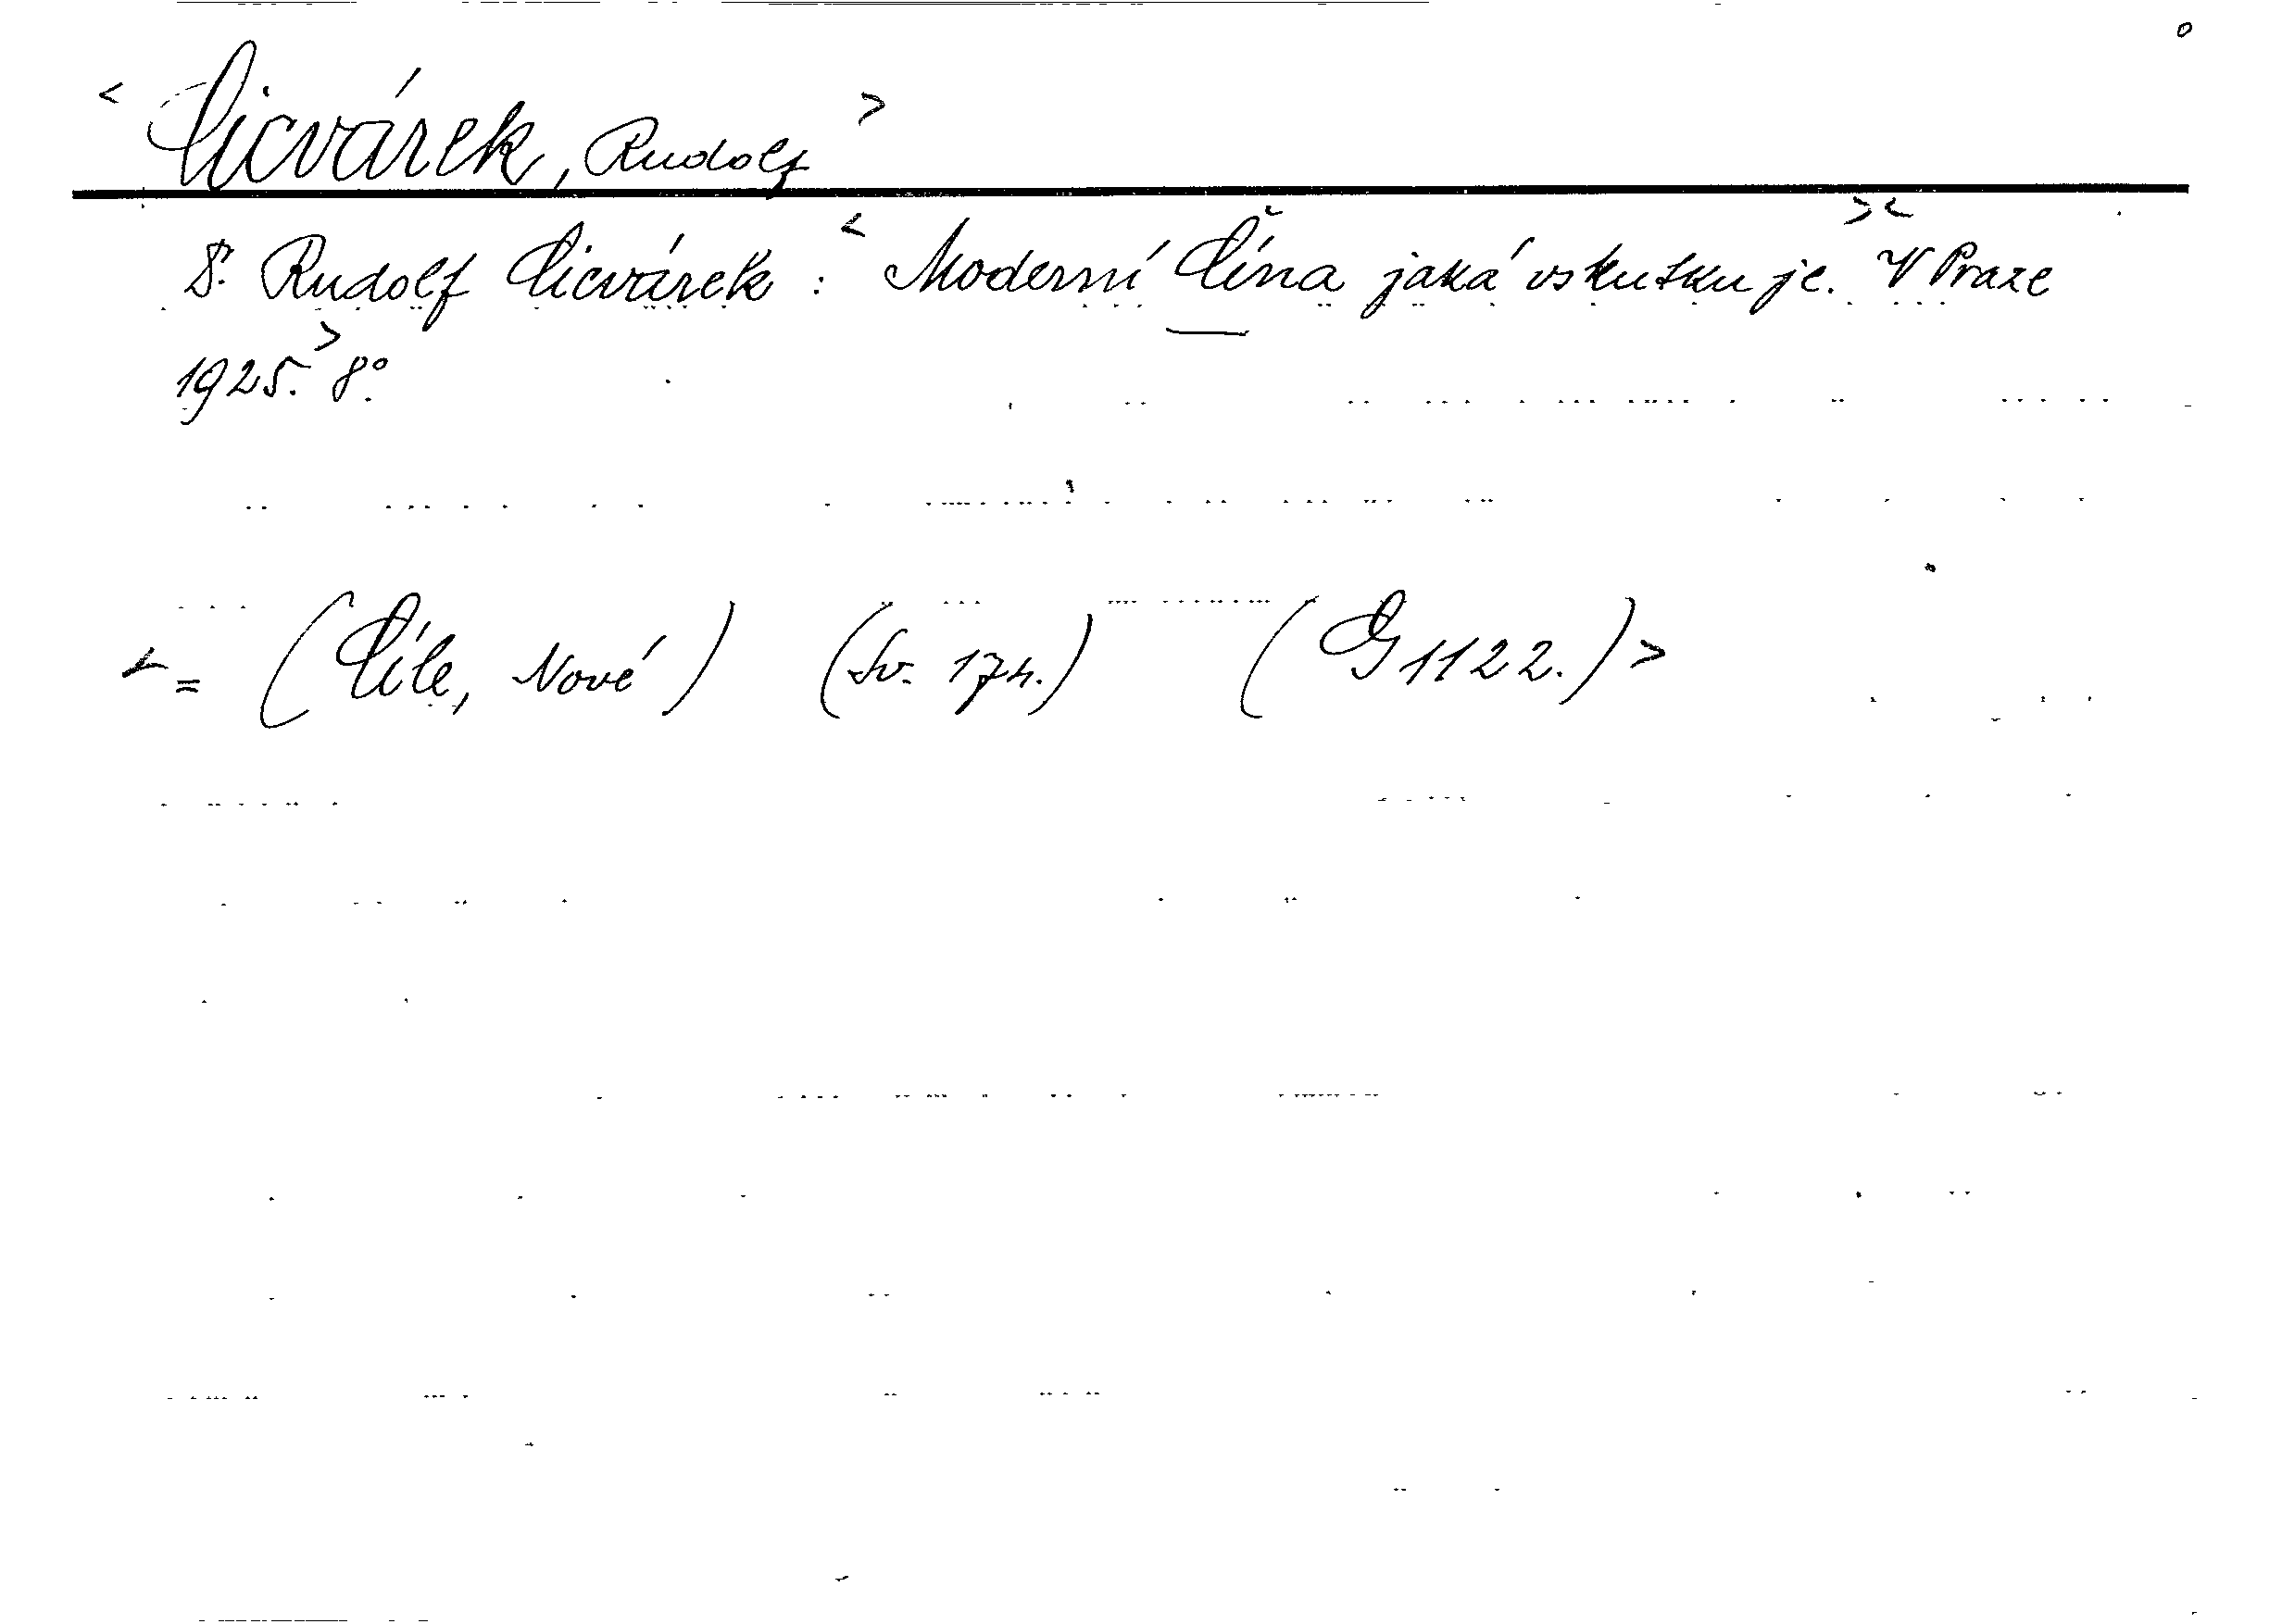 < Cicvárek, Rudolf >
D. Rudolf Cicvárek : < Moderní Čína jaká vskutku je. >< V Praze
1925. > 8°.
< = (Cíle, Nové) (Sv. 174.) (G 1122.) >